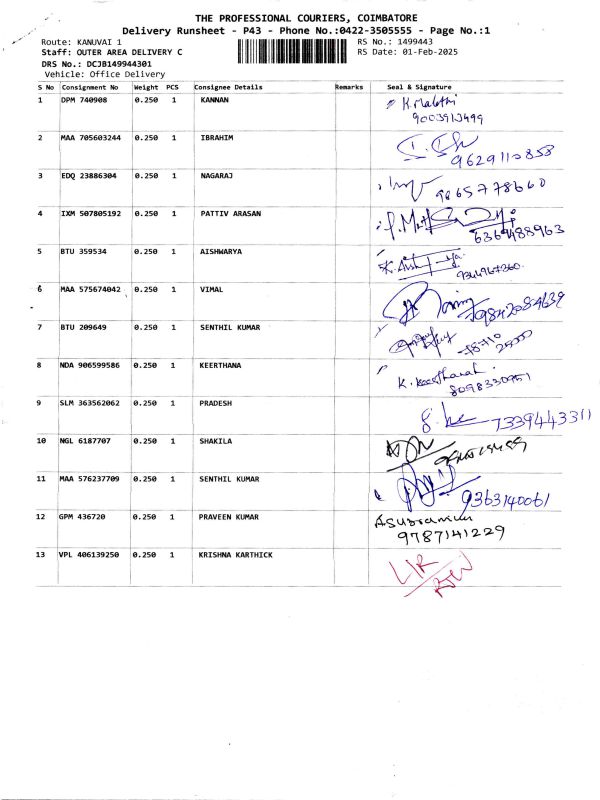 THE PROFESSIONAL COURIERS, COIMBATORE
Delivery Runsheet - P43 - Phone No.:0422-3505555 - Page No.:1
Route: KANUVAI 1 RS No.: 1499443
Staff: OUTER AREA DELIVERY C RS Date: 01-Feb-2025
DRS No.: DCJB149944301
Vehicle: Office Delivery
S No Consignment No Weight PCS Consignee Details Remarks Seal & Signature
1 DPM 740908 0.250 1 KANNAN K. Malathi
9003913499
2 MAA 705603244 0.250 1 IBRAHIM
9629110858
3 EDQ 23886304 0.250 1 NAGARAJ 9865778660
4 IXM 507805192 0.250 1 PATTIV ARASAN
6369488963
5 BTU 359534 0.250 1 AISHWARYA
6 MAA 575674042 0.250 1 VIMAL
7 BTU 209649 0.250 1 SENTHIL KUMAR
8 NDA 906599586 0.250 1 KEERTHANA K. Keerthanah
8098330951
9 SLM 363562062 0.250 1 PRADESH 7339443311
10 NGL 6187707 0.250 1 SHAKILA
11 MAA 576237709 0.250 1 SENTHIL KUMAR 9363140061
12 GPM 436720 0.250 1 PRAVEEN KUMAR
9787141229
13 VPL 406139250 0.250 1 KRISHNA KARTHICK